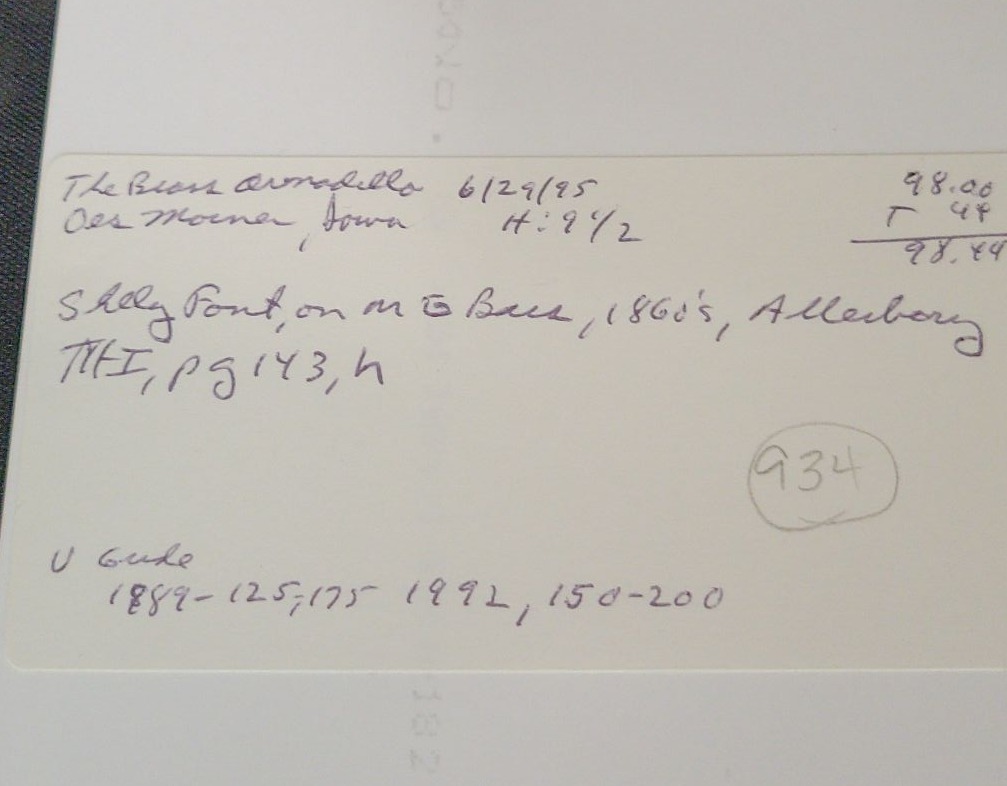 The Brass Armadillo 6/29/95 98.00
Des Moines, Iowa H: 9 1/2 T 44
98.44
Font, on M G Base, 1860's, Atterbury
TMI, pg 143, h
934
V Guide
1889- 125-175 1992, 150-200